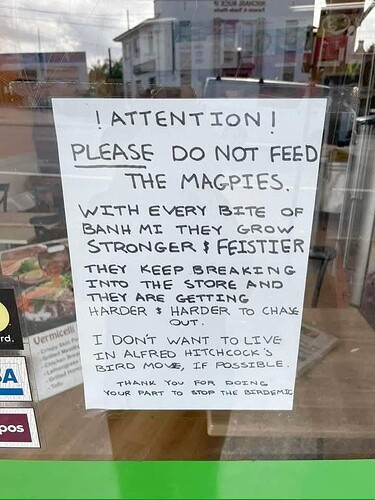 ! ATTENTION !
PLEASE DO NOT FEED
THE MAGPIES.
WITH EVERY BITE OF
BANH MI THEY GROW
STRONGER & FEISTIER
THEY KEEP BREAKING
INTO THE STORE AND
THEY ARE GETTING
HARDER & HARDER TO CHASE
OUT.
I DON'T WANT TO LIVE
IN ALFRED HITCHCOCK'S
BIRD MOVIE, IF POSSIBLE.
THANK YOU FOR DOING
YOUR PART TO STOP THE BIRDEMIC
Vermicelli
rd.
SA
pos